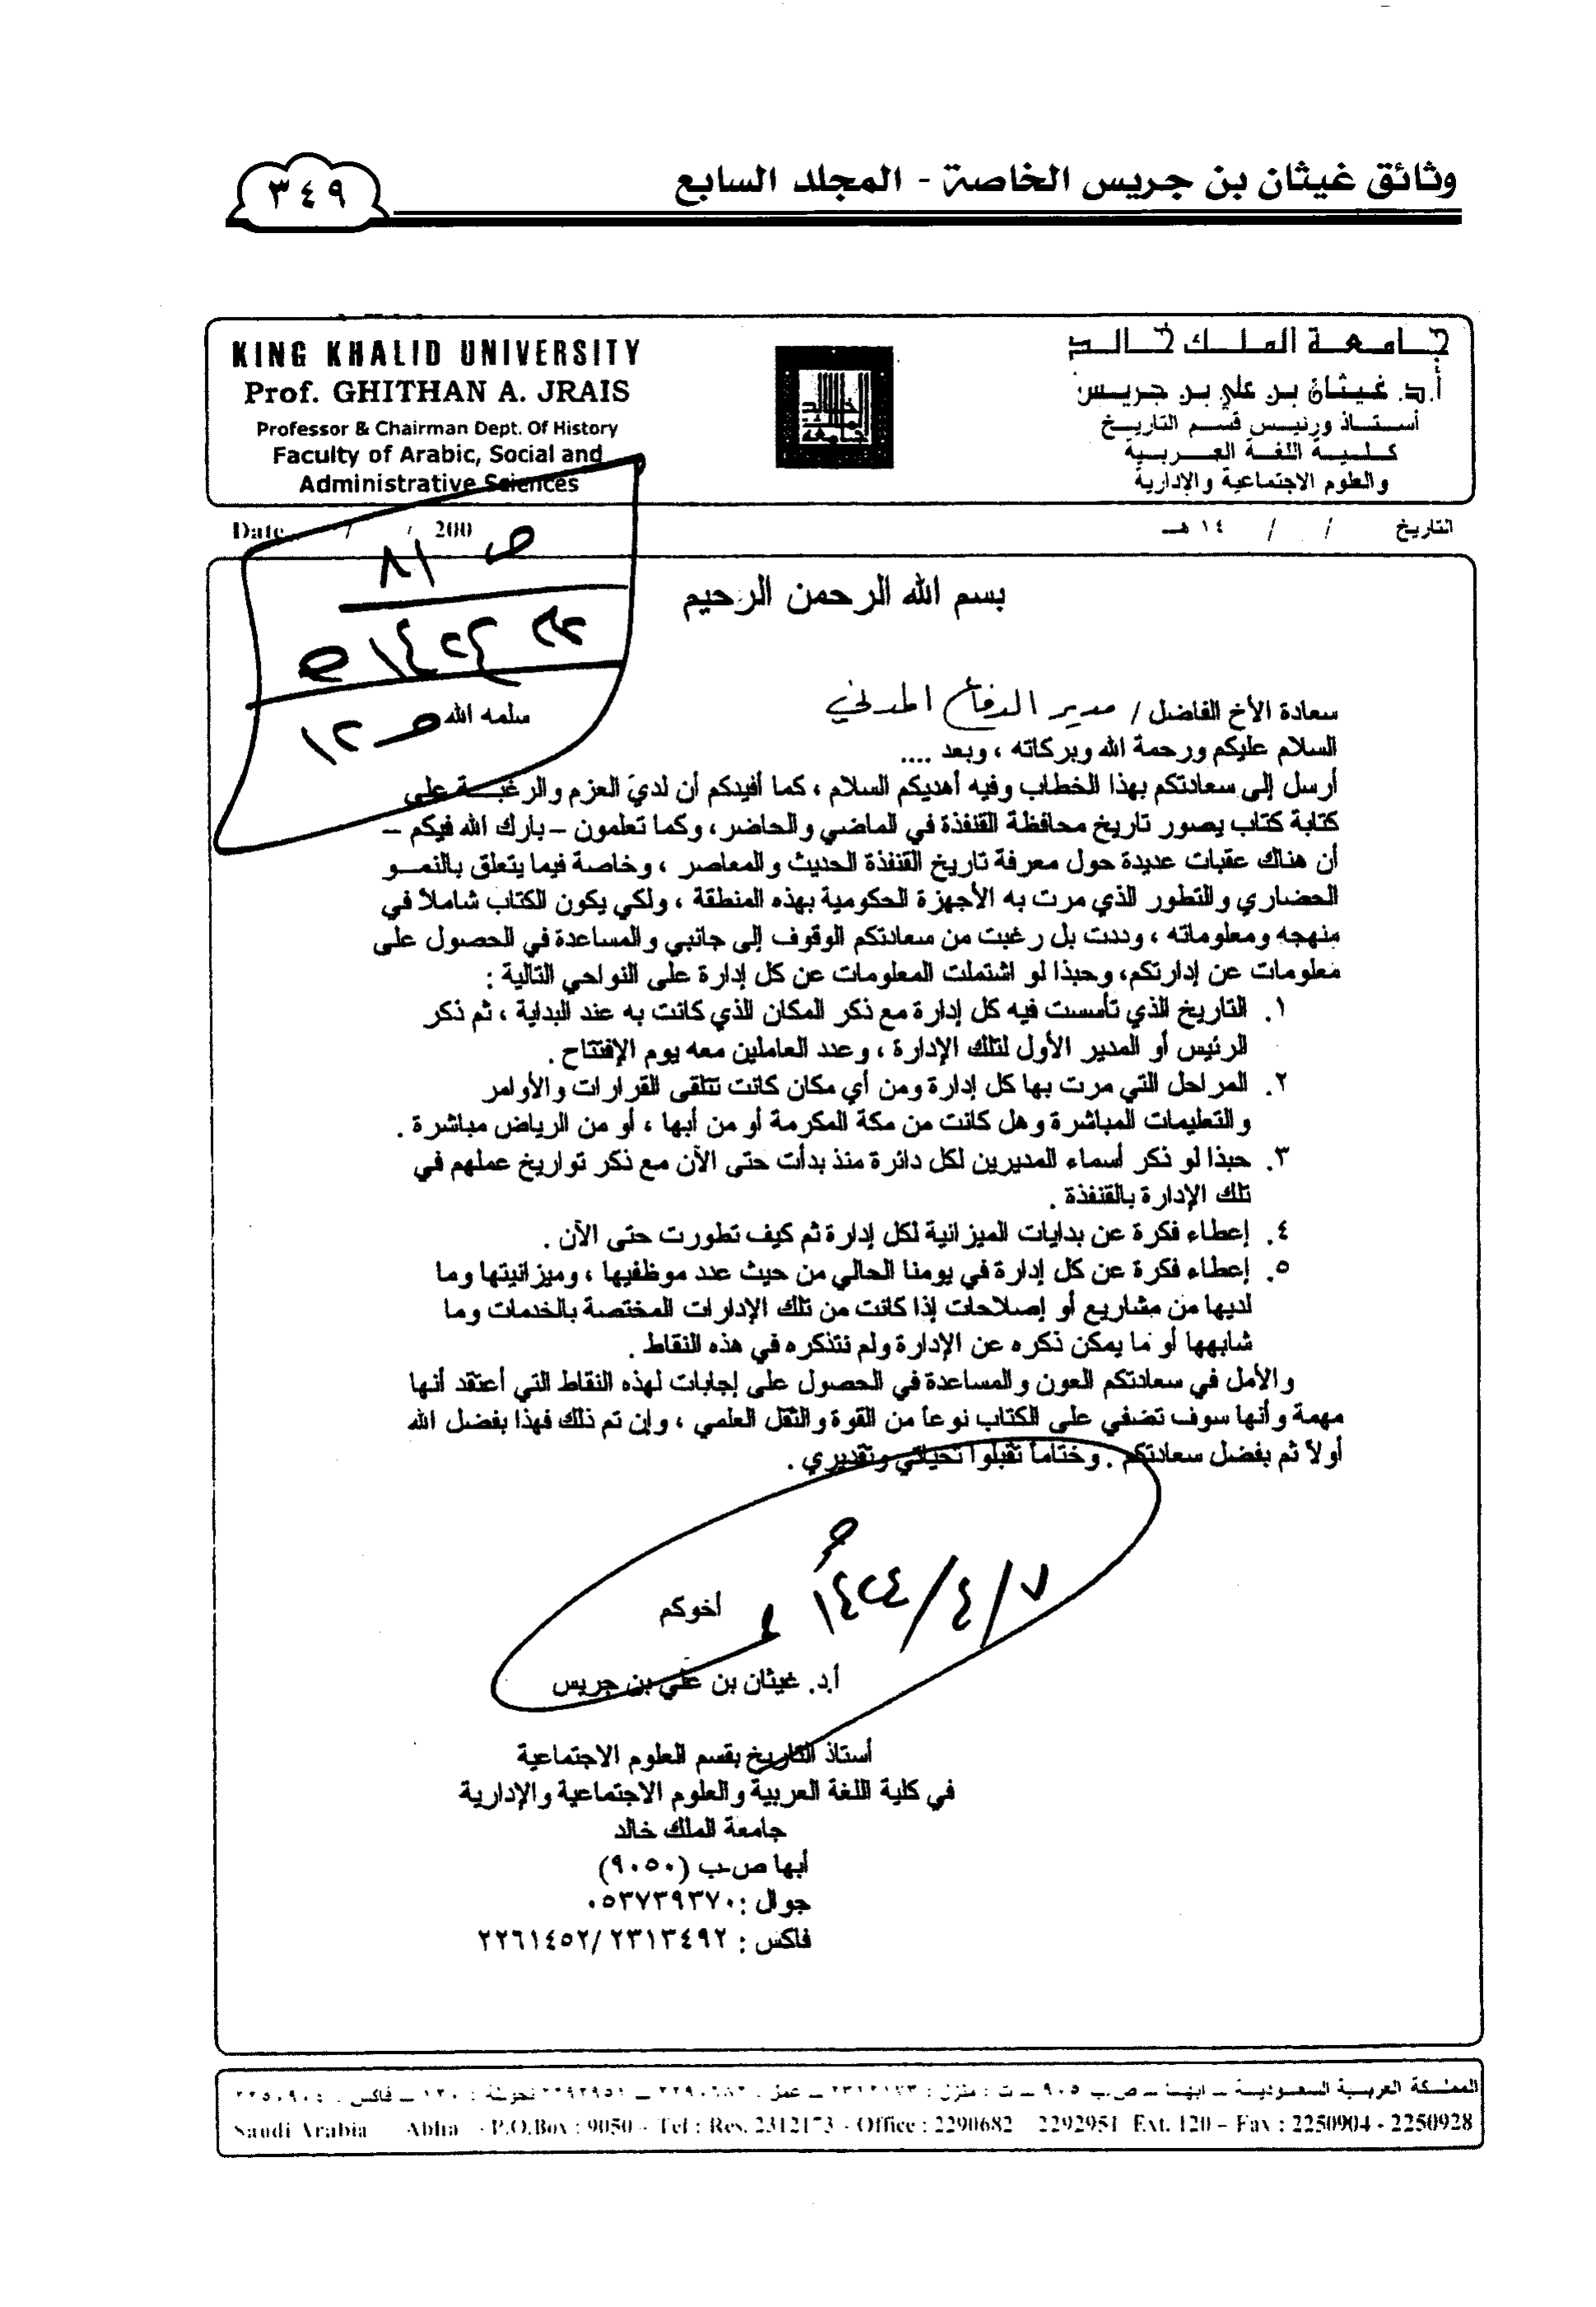 وثائق غيثان بن جريس الخاصة - المجلد السابع
٣٤٩
جامعة الملك خالد
أ.د. غيثان بن علي بن جريس
أستاذ ورئيس قسم التاريخ
كلية اللغة العربية
والعلوم الاجتماعية والإدارية
KING KHALID UNIVERSITY
Prof. GHITHAN A. JRAIS
Professor & Chairman Dept. Of History
Faculty of Arabic, Social and
Administrative Sciences
التاريخ / / ١٤ هـ
Date / / 200
ص ٨١
ص ١٢
بسم الله الرحمن الرحيم
سعادة الأخ الفاضل / مدير الدفاع المدني سلمه الله
السلام عليكم ورحمة الله وبركاته ، وبعد ....
أرسل إلى سعادتكم بهذا الخطاب وفيه أهديكم السلام ، كما أفيدكم أن لديّ العزم والرغبة على
كتابة كتاب يصور تاريخ محافظة القنفذة في الماضي والحاضر، وكما تعلمون – بارك الله فيكم –
أن هناك عقبات عديدة حول معرفة تاريخ القنفذة الحديث والمعاصر ، وخاصة فيما يتعلق بالنمو
الحضاري والتطور الذي مرت به الأجهزة الحكومية بهذه المنطقة ، ولكي يكون الكتاب شاملاً في
منهجه ومعلوماته ، وددت بل رغبت من سعادتكم الوقوف إلى جانبي والمساعدة في الحصول على
معلومات عن إدارتكم، وحبذا لو اشتملت المعلومات عن كل إدارة على النواحي التالية :
١. التاريخ الذي تأسست فيه كل إدارة مع ذكر المكان الذي كانت به عند البداية ، ثم ذكر
الرئيس أو المدير الأول لتلك الإدارة ، وعدد العاملين معه يوم الإفتتاح .
٢. المراحل التي مرت بها كل إدارة ومن أي مكان كانت تتلقى القرارات والأوامر
والتعليمات المباشرة وهل كانت من مكة المكرمة أو من أبها ، أو من الرياض مباشرة .
٣. حبذا لو ذكر أسماء المديرين لكل دائرة منذ بدأت حتى الآن مع ذكر تواريخ عملهم في
تلك الإدارة بالقنفذة .
٤. إعطاء فكرة عن بدايات الميزانية لكل إدارة ثم كيف تطورت حتى الآن .
٥. إعطاء فكرة عن كل إدارة في يومنا الحالي من حيث عدد موظفيها ، وميزانيتها وما
لديها من مشاريع أو إصلاحات إذا كانت من تلك الإدارات المختصة بالخدمات وما
شابهها أو ما يمكن ذكره عن الإدارة ولم نتذكره في هذه النقاط .
والأمل في سعادتكم العون والمساعدة في الحصول على إجابات لهذه النقاط التي أعتقد أنها
مهمة وأنها سوف تضفي على الكتاب نوعاً من القوة والثقل العلمي ، وإن تم ذلك فهذا بفضل الله
أولاً ثم بفضل سعادتكم . وختاماً تقبلوا تحياتي وتقديري .
٧/٤/١٤٢٤ هـ
أخوكم
أ.د. غيثان بن علي بن جريس
أستاذ التاريخ بقسم العلوم الاجتماعية
في كلية اللغة العربية والعلوم الاجتماعية والإدارية
جامعة الملك خالد
أبها ص.ب (٩٠٥٠)
جوال :٠٥٣٧٣٩٣٧٠
فاكس : ٢٢٦١٤٥٢/٢٣١٣٤٩٢
المملكة العربية السعودية – ابها – ص.ب ٩٠٥ – ت : منزل : ٢٣١٢١٧٣ – عمل : ٢٢٩٠٦٨٢ – ٢٢٩٢٩٥١ تحويلة : ١٢٠ – فاكس
Saudi Arabia Abha - P.O.Box : 9050 - Tel : Res. 2312173 - Office : 2290682 2292951 Ext. 120 – Fax : 2250904 - 2250928